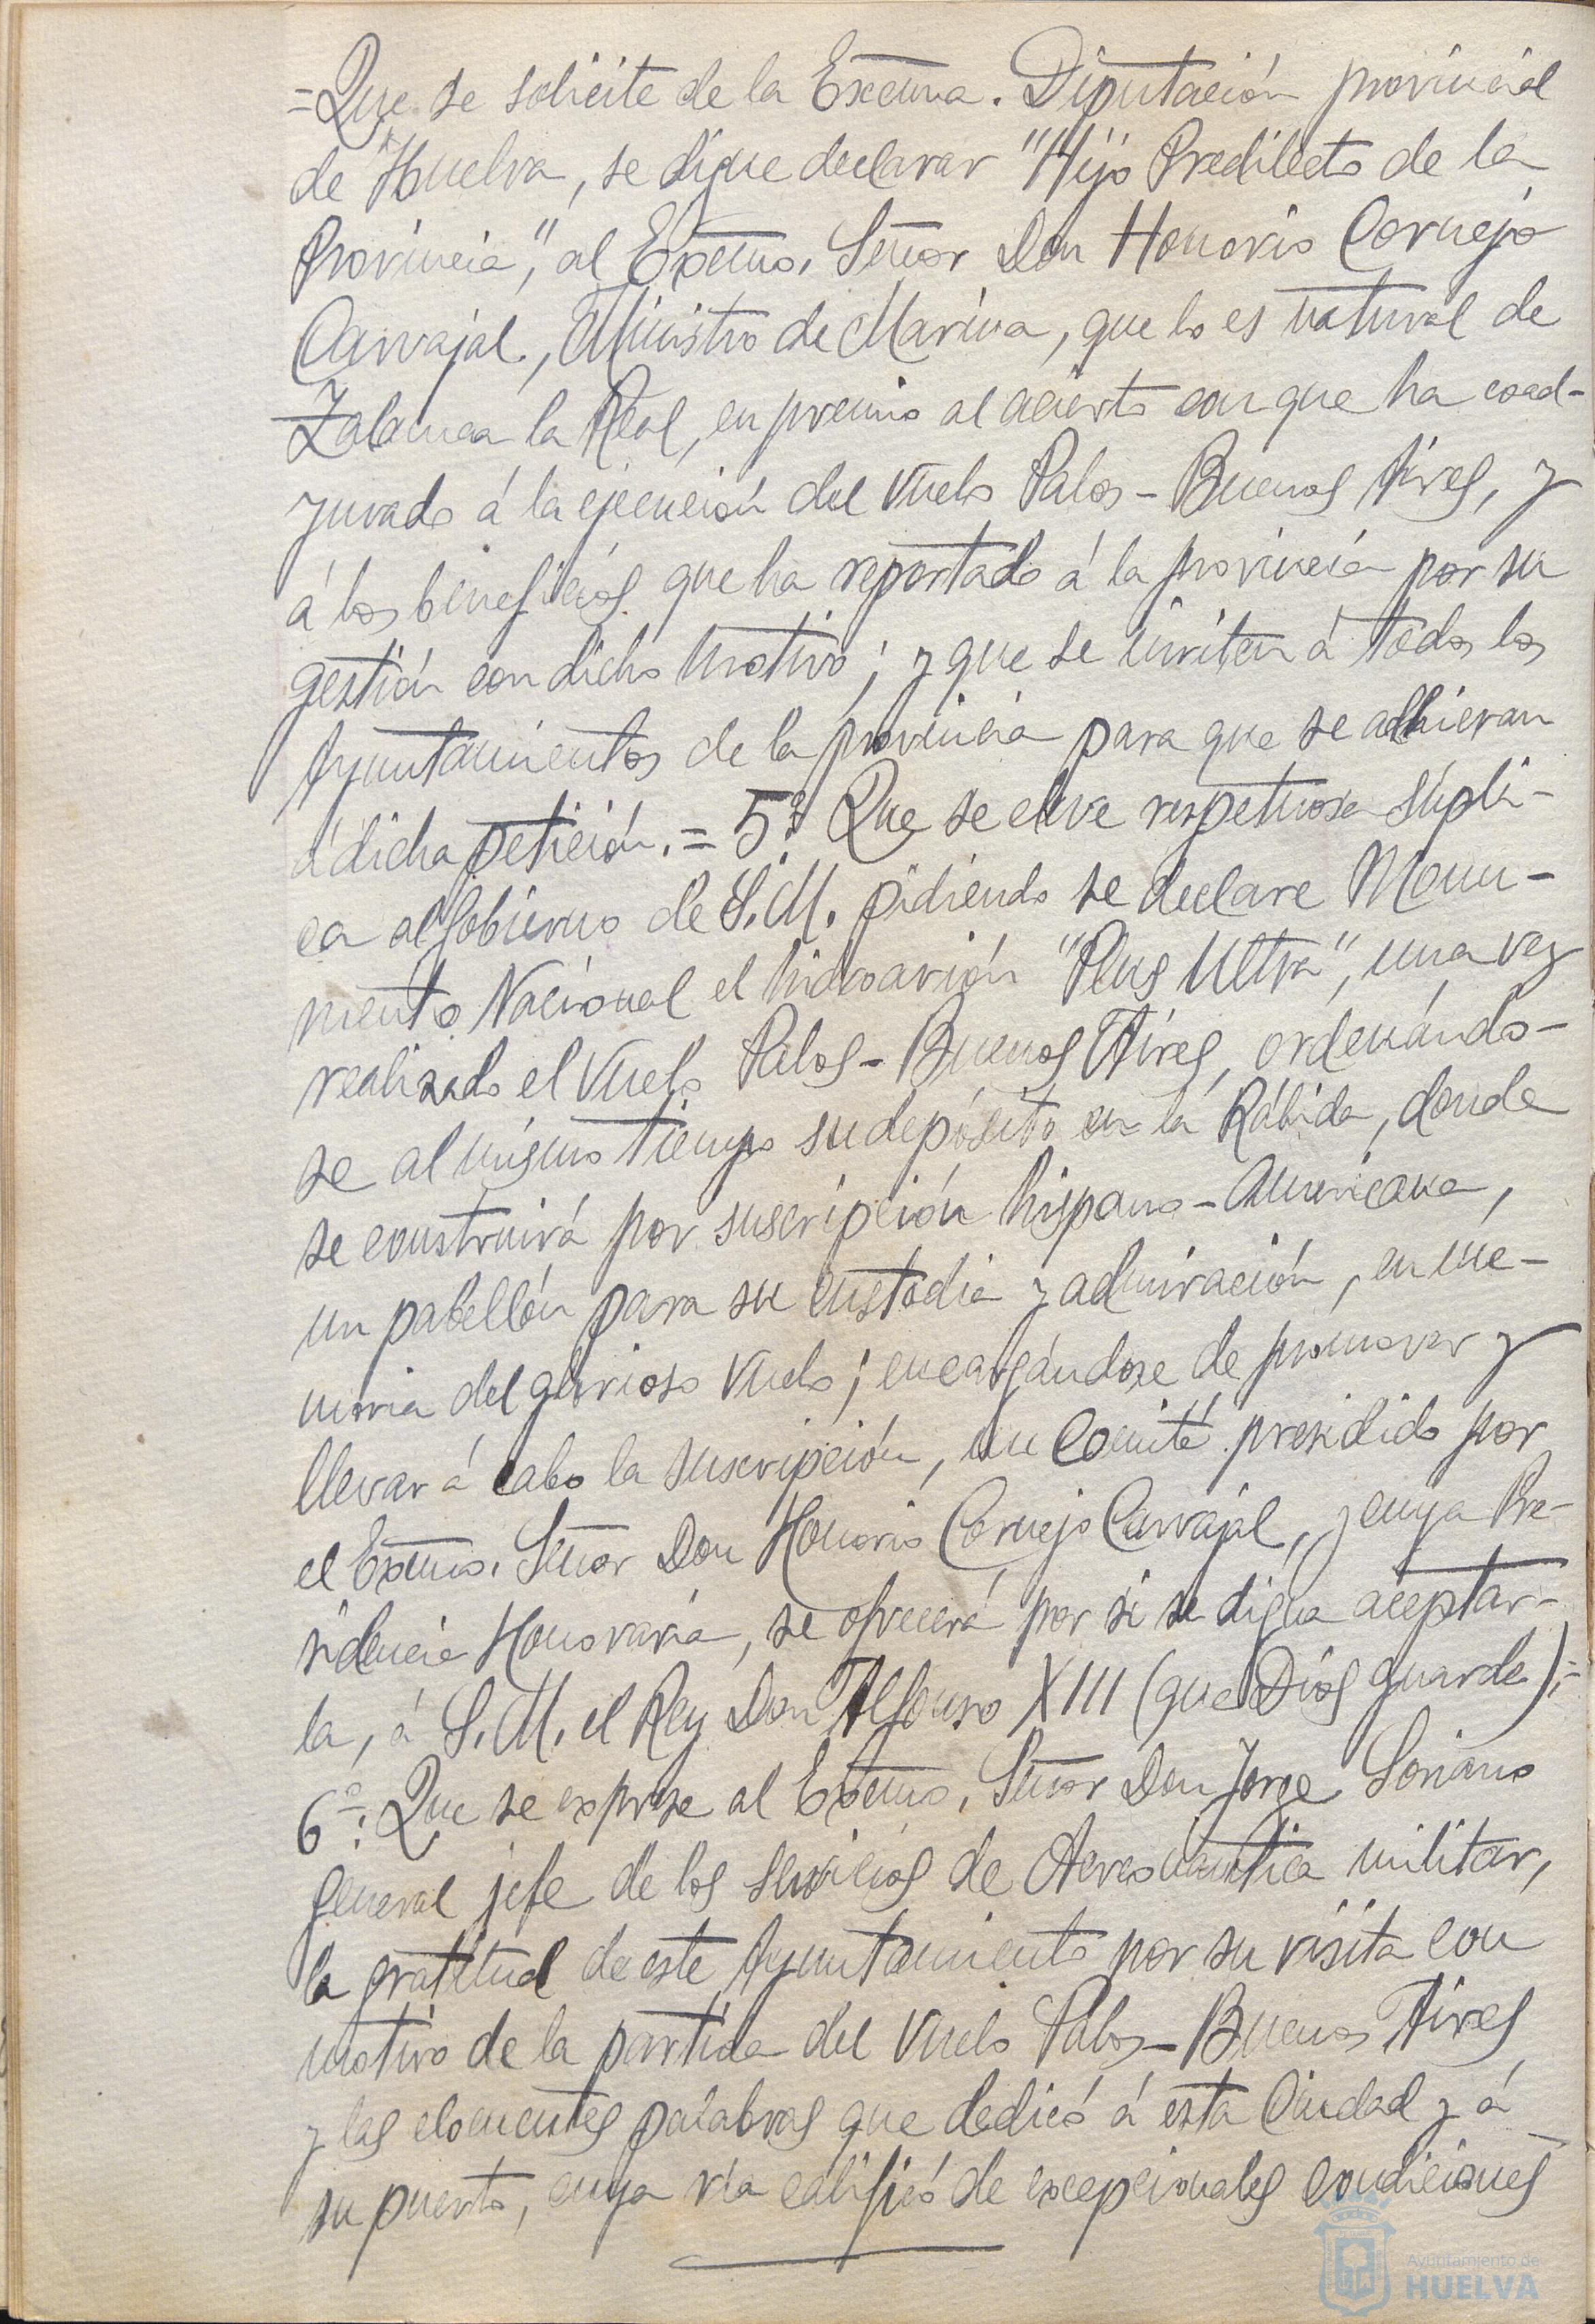 =Que se solicite de la Excma. Diputación provincial
de Huelva, se digne declarar "Hijo Predilecto de la
Provincia", al Excmo. Señor Don Honorio Cornejo
Carvajal, Ministro de Marina, que lo es natural de
Zalamea la Real, en premio al acierto con que ha coad-
yuvado á la ejecución del vuelo Palos-Buenos Aires, y
á los beneficios que ha reportado á la provincia por su
gestión con dicho motivo; y que se inviten á todos los
Ayuntamientos de la provincia para que se adhieran
á dicha petición.= 5º: Que se eleve respetuosa súpli-
ca al Gobierno de S.M. pidiendo se declare Monu-
mento Nacional el hidroavión "Plus Ultra", una vez
realizado el vuelo Palos-Buenos Aires, ordenándo-
se al mismo tiempo su depósito en la Rábida, donde
se construirá por suscripción hispano-americana,
un pabellón para su custodia y admiración, en me-
moria del glorioso vuelo; encargándose de promover y
llevar á cabo la suscripción, un Comité presidido por
el Excmo. Señor Don Honorio Cornejo Carvajal, y cuya Pre-
sidencia Honoraria, se ofrecerá por si se digna aceptar-
la, á S.M. el Rey Don Alfonso XIII (que Dios guarde).=
6º: Que se exprese al Excmo. Señor Don Jorge Soriano
general jefe de los servicios de Aeronáutica militar,
la gratitud de este Ayuntamiento por su visita con
motivo de la partida del vuelo Palos-Buenos Aires
y las elocuentes palabras que dedicó á esta Ciudad y á
su puerto, cuya ría calificó de excepcionales condiciones
Ayuntamiento de
HUELVA